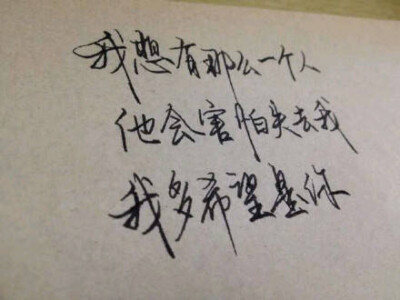 我想有那么一个人
他会害怕失去我
我多希望是你